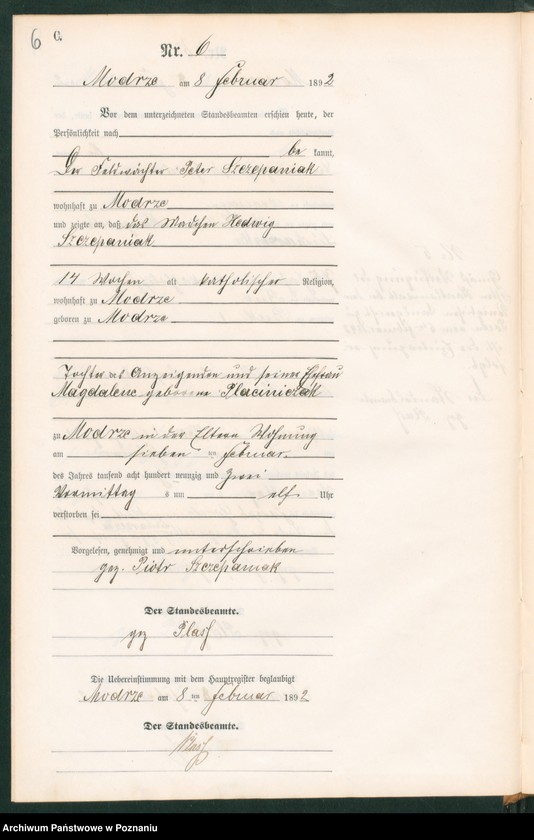 6 C.
Nr. 6
Modrze am 8 Februar 1892
Vor dem unterzeichneten Standesbeamten erschien heute, der
Persönlichkeit nach
be kannt,
Der Feldwächter Peter Szczepaniak
wohnhaft zu Modrze
und zeigte an, daß das Mädchen Hedwig
Szczepaniak
14 Wochen alt katholischer Religion,
wohnhaft zu Modrze
geboren zu Modrze
Tochter des Anzeigenden und seiner Ehefrau
Magdalene geborene Placiniczak
zu Modrze in der Eltern Wohnung
am sieben ten Februar
des Jahres tausend acht hundert neunzig und zwei
Vormittag s um elf Uhr
verstorben sei
Vorgelesen, genehmigt und unterschrieben
gez. Piotr Szczepaniak
Der Standesbeamte.
gez
Die Uebereinstimmung mit dem Hauptregister beglaubigt
Modrze am 8 ten Februar 1892
Der Standesbeamte.
Archiwum Państwowe w Poznaniu